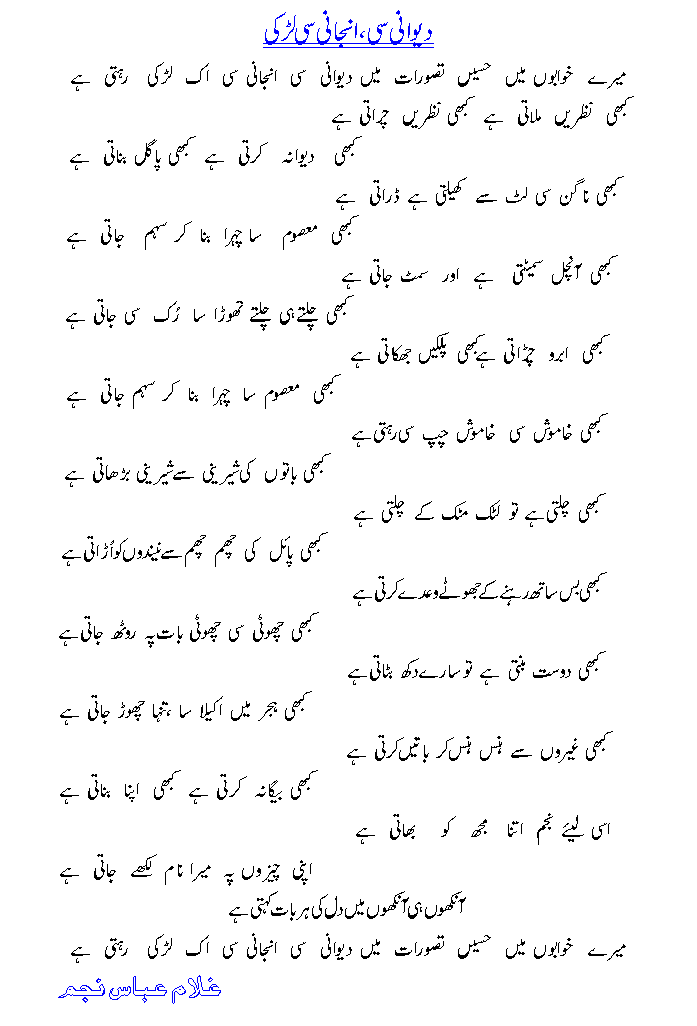 دیوانی سی، انجانی سی لڑکی
میرے خوابوں میں حسیں تصورات میں دیوانی سی انجانی سی اک لڑکی رہتی ہے
کبھی نظریں ملاتی ہے کبھی نظریں چراتی ہے
کبھی دیوانہ کرتی ہے کبھی پاگل بناتی ہے
کبھی ناگن سی لٹ سے کھیلتی ہے ڈراتی ہے
کبھی معصوم سا چہرا بنا کر سہم جاتی ہے
کبھی آنچل سمیٹتی ہے اور سمٹ جاتی ہے
کبھی چلتے ہی چلتے تھوڑا سا رُک سی جاتی ہے
کبھی ابرو چڑاتی ہے کبھی پلکیں جھکاتی ہے
کبھی معصوم سا چہرا بنا کر سہم جاتی ہے
کبھی خاموش سی خاموش چپ سی رہتی ہے
کبھی باتوں کی شیرینی سے شیرینی بڑھاتی ہے
کبھی چلتی ہے تو لٹک مٹک کے چلتی ہے
کبھی پائل کی چھم چھم سے نیندوں کو اُڑاتی ہے
کبھی بس ساتھ رہنے کے جھوٹے وعدے کرتی ہے
کبھی چھوٹی سی چھوٹی بات پہ روٹھ جاتی ہے
کبھی دوست بنتی ہے تو سارے دکھ بٹاتی ہے
کبھی ہجر میں اکیلا سا ،تنہا چھوڑ جاتی ہے
کبھی غیروں سے ہنس ہنس کر باتیں کرتی ہے
کبھی بیگانہ کرتی ہے کبھی اپنا بناتی ہے
اسی لیئے نجم اتنا مجھ کو بھاتی ہے
اپنی چیزوں پہ میرا نام لکھے جاتی ہے
آنکھوں ہی آنکھوں میں دل کی ہر بات کہتی ہے
میرے خوابوں میں حسیں تصورات میں دیوانی سی انجانی سی اک لڑکی رہتی ہے
غلام عباس نجم